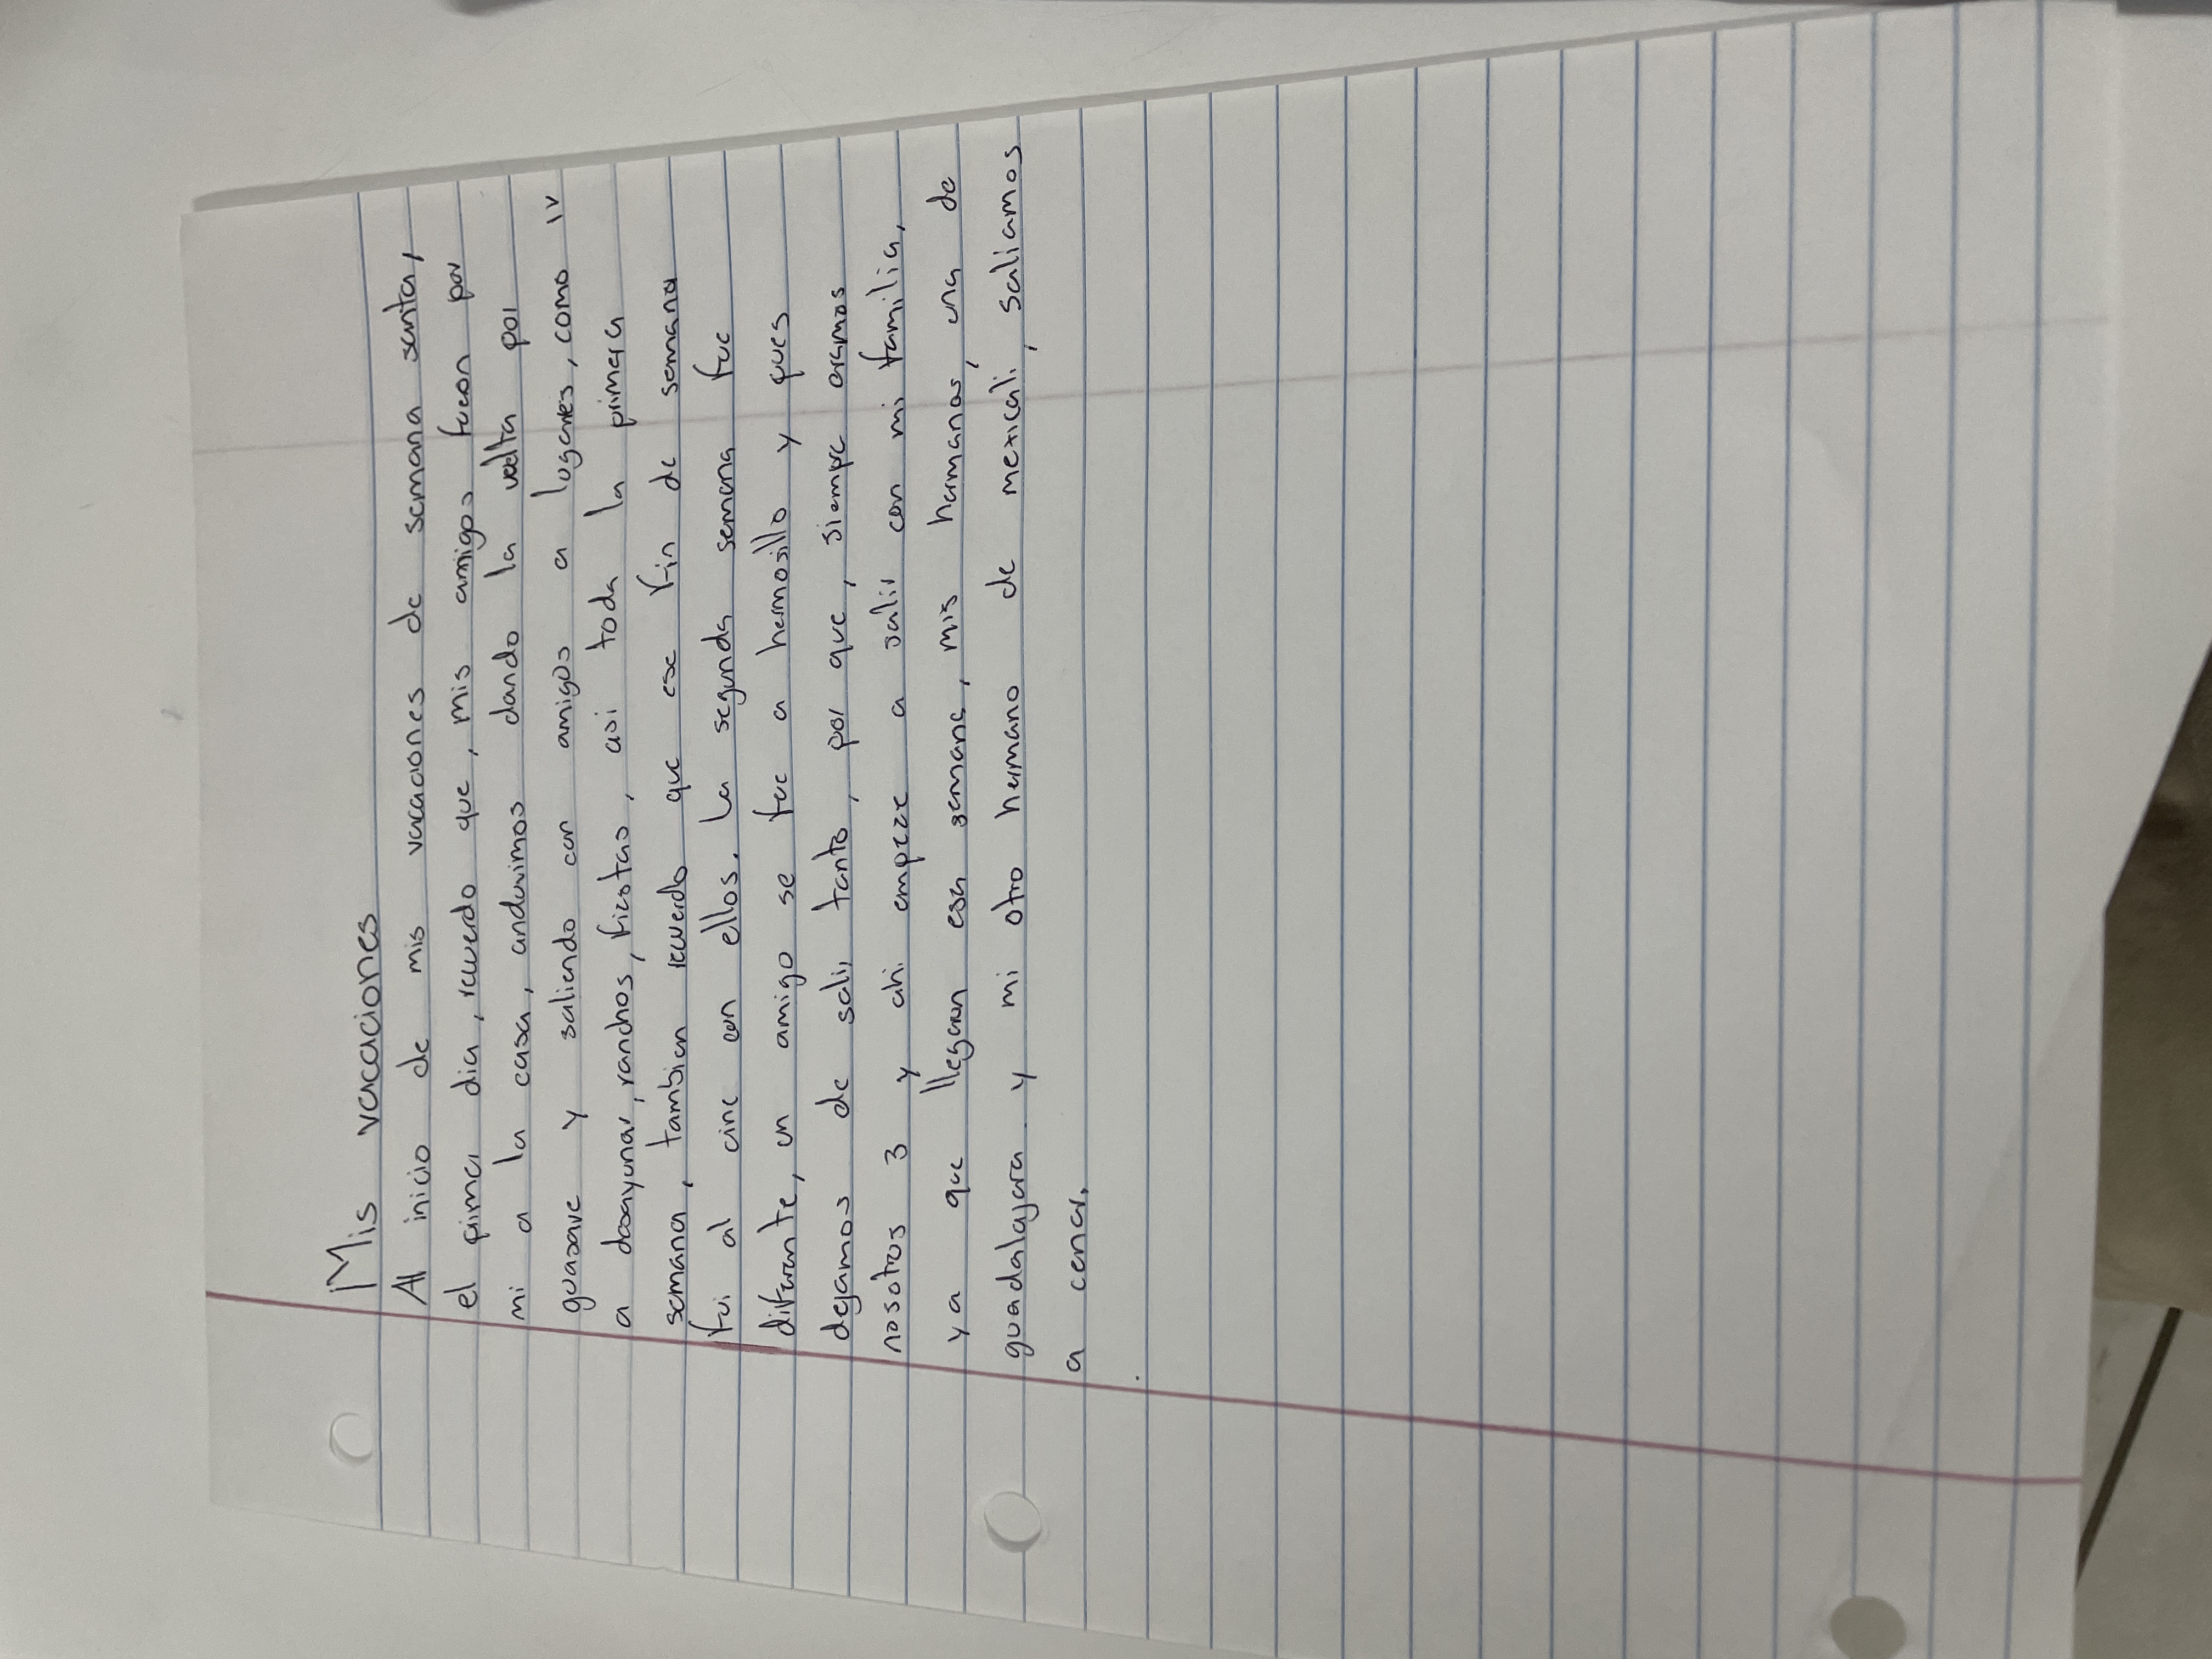 Mis vacaciones
Al inicio de mis vacaciones de semana santa,
el primer dia, recuerdo que, mis amigos fueron por
mi a la casa, anduvimos dando la vuelta por
guasave y saliendo con amigos a lugares, como ir
a desayunar, ranchos, fiestas, asi toda la primera
semana, tambien recuerdo que ese fin de semana
fui al cine con ellos. La segunda semana fue
diferente, un amigo se fue a hermosillo y pues
dejamos de salir tanto, por que, siempre eramos
nosotros 3 y ahi empeze a salir con mi familia,
ya que llegaron esa semana, mis hermanos, una de
guadalajara y mi otro hermano de mexicali, saliamos
a cenar.